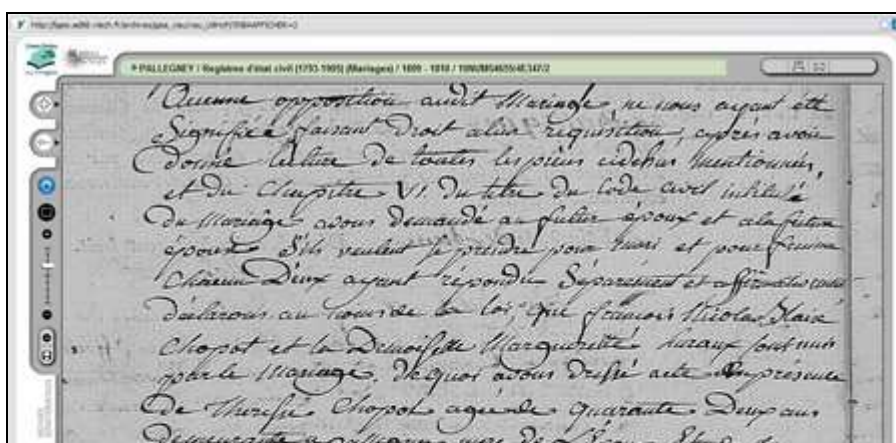 PALLEGNEY / Registres d'état civil (1793-1905) (Mariages) / 1809 - 1810 /
Aucune opposition audit Mariage ne nous ayant été
Signifiée faisant Droit a leur requisition, après avoir
donné lecture de toutes les pieces cidessus mentionnées,
et du Chapitre VI du titre du Code civil intitulé
du Mariage avons demandé au futur époux et ala future
épouse S'ils veulent se prendre pour mari et pour femme
Chacun Deux ayant répondu Séparément et affirmativement
déclarons au nom de la loi, que françois Nicolas
Chopot et la Demoiselle Margueritte huraux sont unis
par le Mariage. De quoi avons Dressé acte En présence
De Chopot agé de quarante Deux ans